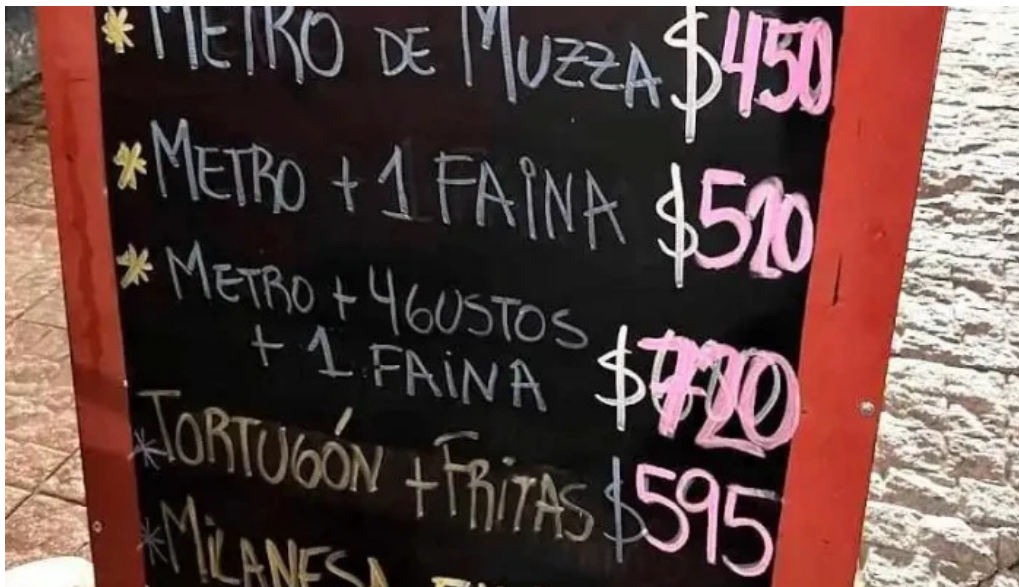 * METRO DE MUZZA $450
* METRO + 1 FAINA $520
* METRO + 4 GUSTOS
+ 1 FAINA $720
* TORTUGÓN + FRITAS $595
* MILANESA